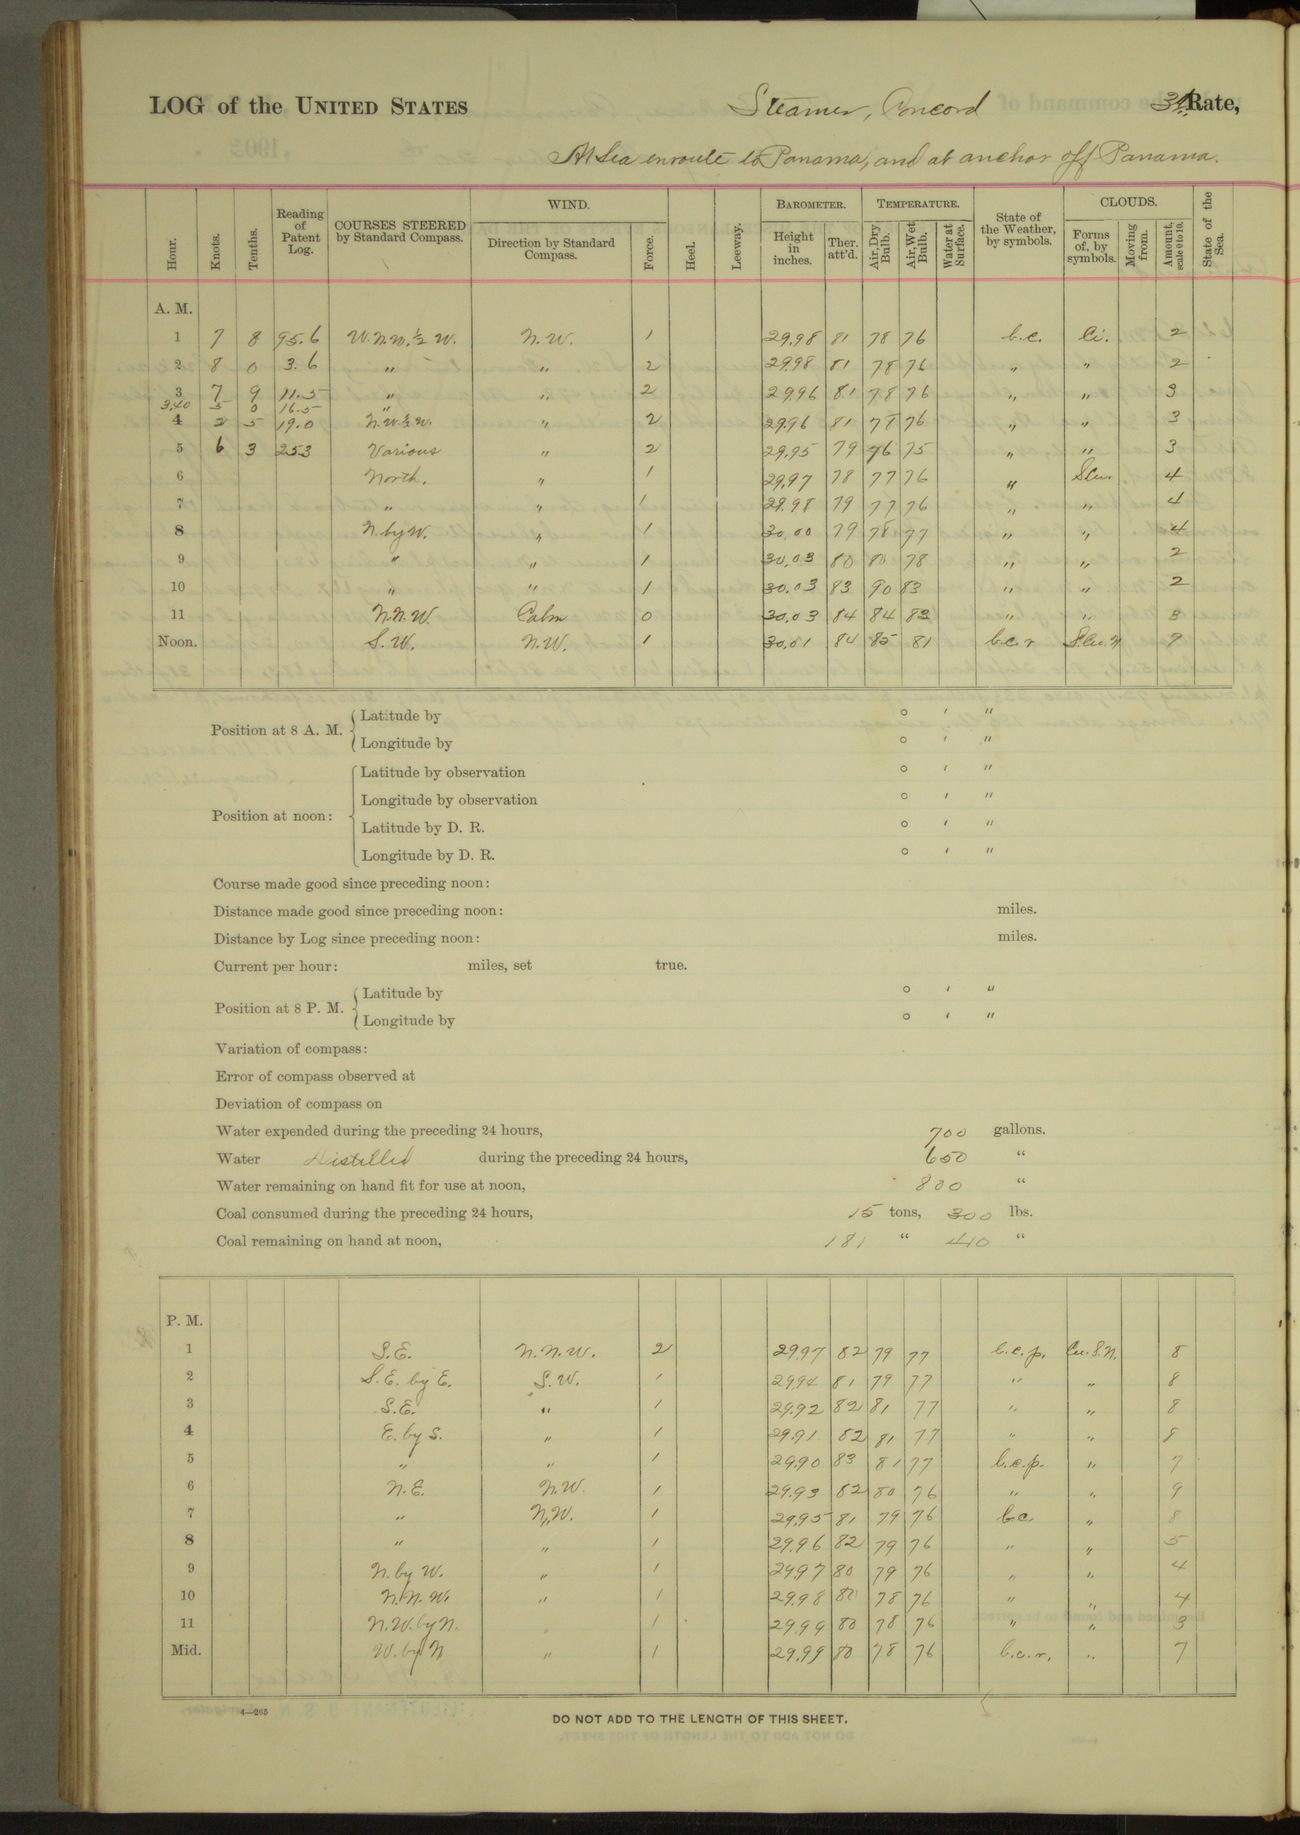 LOG of the UNITED STATES Steamer, Concord 3d Rate,
At Sea enroute to Panama, and at anchor off Panama.
Hour. Knots. Tenths. Reading of Patent Log. COURSES STEERED by Standard Compass. WIND. Direction by Standard Compass. Force. Heel. Leeway. BAROMETER. Height in inches. Ther. att'd. TEMPERATURE. Air, Dry Bulb. Air, Wet Bulb. Water at Surface. State of the Weather, by symbols. CLOUDS. Forms of, by symbols. Moving from. Amount, scale 0 to 10. State of the Sea.
A. M.
1 7 8 95.6 W.N.W. ½ W. N.W. 1 29.98 81 78 76 b.c. Ci. 2
2 8 0 3.6 " " 2 29.98 81 78 76 " " 2
3 7 9 11.5 " " 2 29.96 81 78 76 " " 3
3.40 5 0 16.5 "
4 2 5 19.0 N.W.½W. " 2 29.96 81 78 76 " " 3
5 6 3 25.3 Various " 2 29.95 79 76 75 " " 3
6 North. " 1 29.97 78 77 76 " S.Cu. 4
7 " " 1 29.98 79 77 76 " " 4
8 N. by W. " 1 30.00 79 78 77 " " 4
9 " " 1 30.03 80 80 78 " " 2
10 " " 1 30.03 83 90 83 " " 2
11 N.N.W. Calm 0 30.03 84 84 83 " " 3
Noon. S.W. N.W. 1 30.01 84 85 81 b.c.r S.Cu.N 9
Position at 8 A. M. Latitude by ° ′ ″
Longitude by ° ′ ″
Position at noon: Latitude by observation ° ′ ″
Longitude by observation ° ′ ″
Latitude by D. R. ° ′ ″
Longitude by D. R. ° ′ ″
Course made good since preceding noon:
Distance made good since preceding noon: miles.
Distance by Log since preceding noon: miles.
Current per hour: miles, set true.
Position at 8 P. M. Latitude by ° ′ ″
Longitude by ° ′ ″
Variation of compass:
Error of compass observed at
Deviation of compass on
Water expended during the preceding 24 hours, 700 gallons.
Water distilled during the preceding 24 hours, 650 "
Water remaining on hand fit for use at noon, 800 "
Coal consumed during the preceding 24 hours, 15 tons, 300 lbs.
Coal remaining on hand at noon, 181 " 410 "
P. M.
1 S.E. N.N.W. 2 29.97 82 79 77 b.c.p. Cu.S.N. 8
2 S.E. by E. S.W. 1 29.94 81 79 77 " " 8
3 S.E. " 1 29.92 82 81 77 " " 8
4 E. by S. " 1 29.91 82 81 77 " " 8
5 " " 1 29.90 83 81 77 b.c.p. " 7
6 N.E. N.W. 1 29.93 82 80 76 " " 9
7 " N.W. 1 29.95 81 79 76 b.c. " 8
8 " " 1 29.96 82 79 76 " " 5
9 N. by W. " 1 29.97 80 79 76 " " 4
10 N.N.W. " 1 29.98 80 78 76 " " 4
11 N.W. by N. 1 29.99 80 78 76 " " 3
Mid. W. by N " 1 29.99 80 78 76 b.c.r. " 7
4—205
DO NOT ADD TO THE LENGTH OF THIS SHEET.